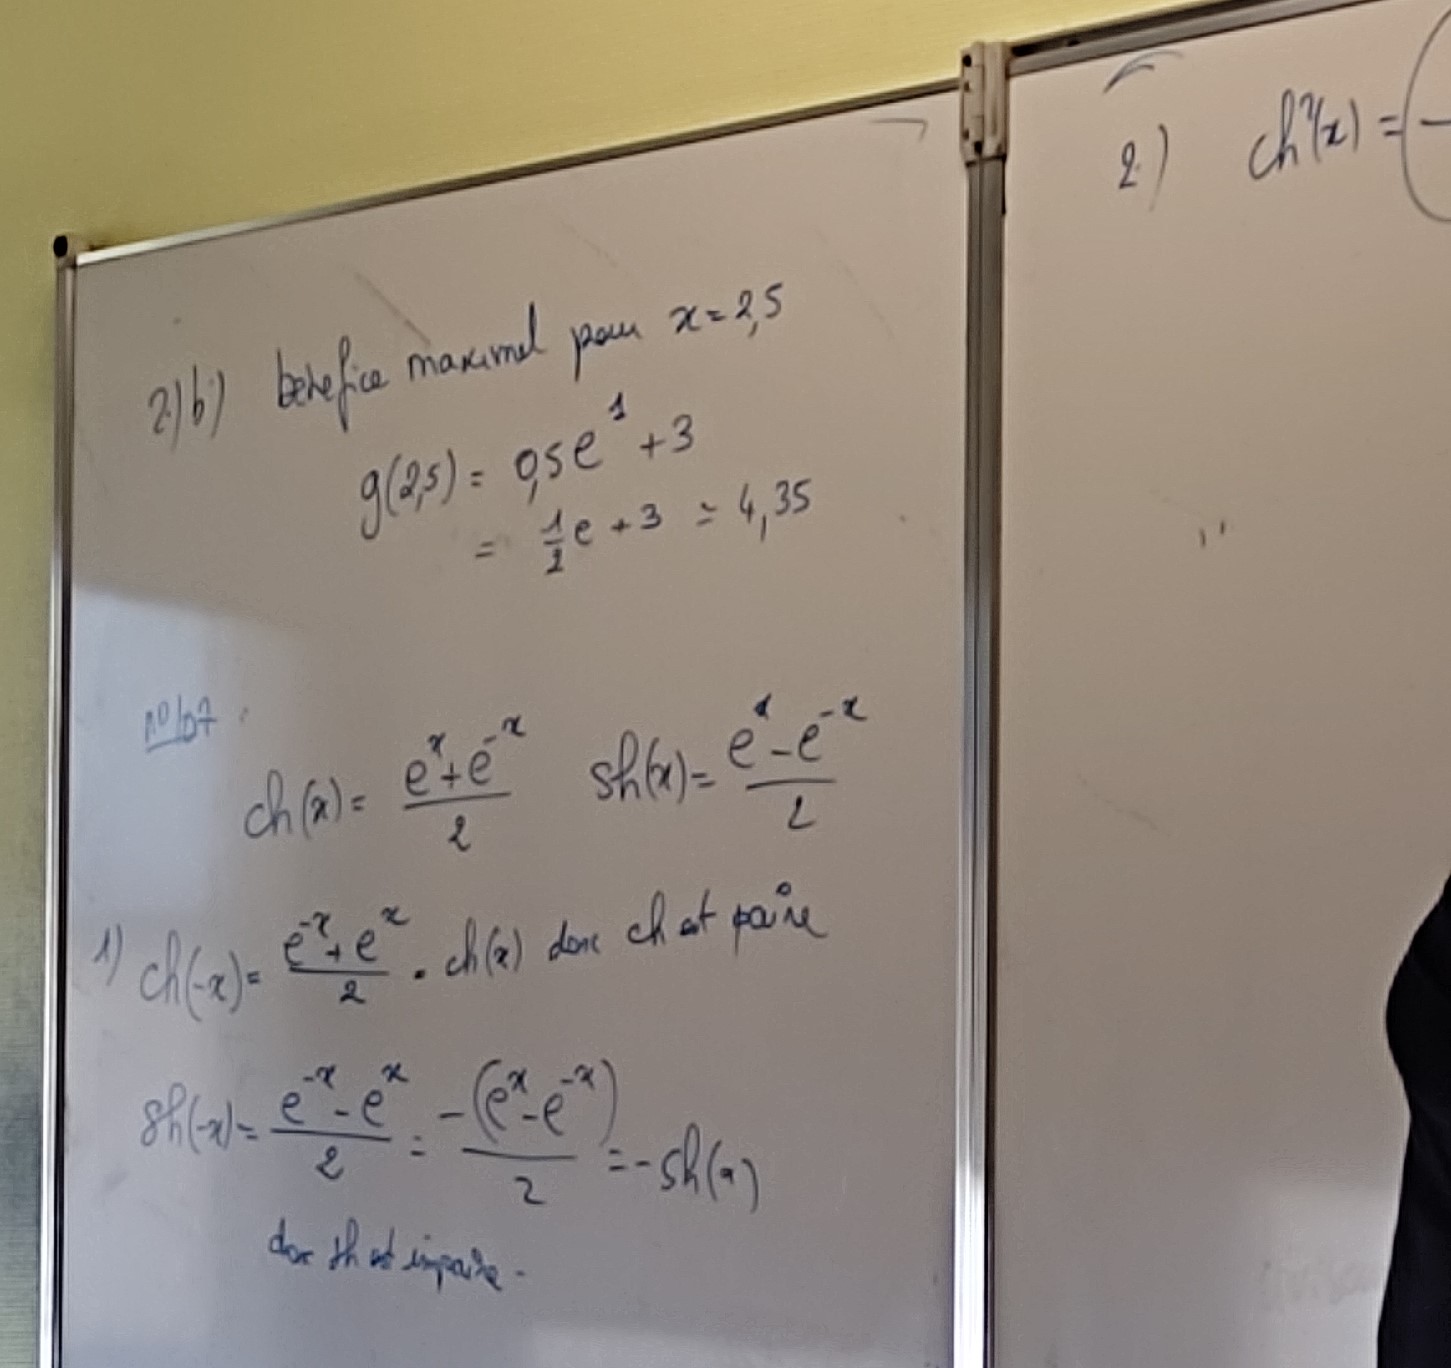 2)b) benefice maximal pour x = 2,5
g(2,5) = 0,5e¹ + 3
= 1/2 e + 3 ≃ 4,35
n°107 :
ch(x) = (eˣ + e⁻ˣ)/2 sh(x) = (eˣ - e⁻ˣ)/2
1) ch(-x) = (e⁻ˣ + eˣ)/2 = ch(x) donc ch est paire
sh(-x) = (e⁻ˣ - eˣ)/2 = -(eˣ - e⁻ˣ)/2 = -sh(x)
donc sh est impaire.
2) ch²(x) = (